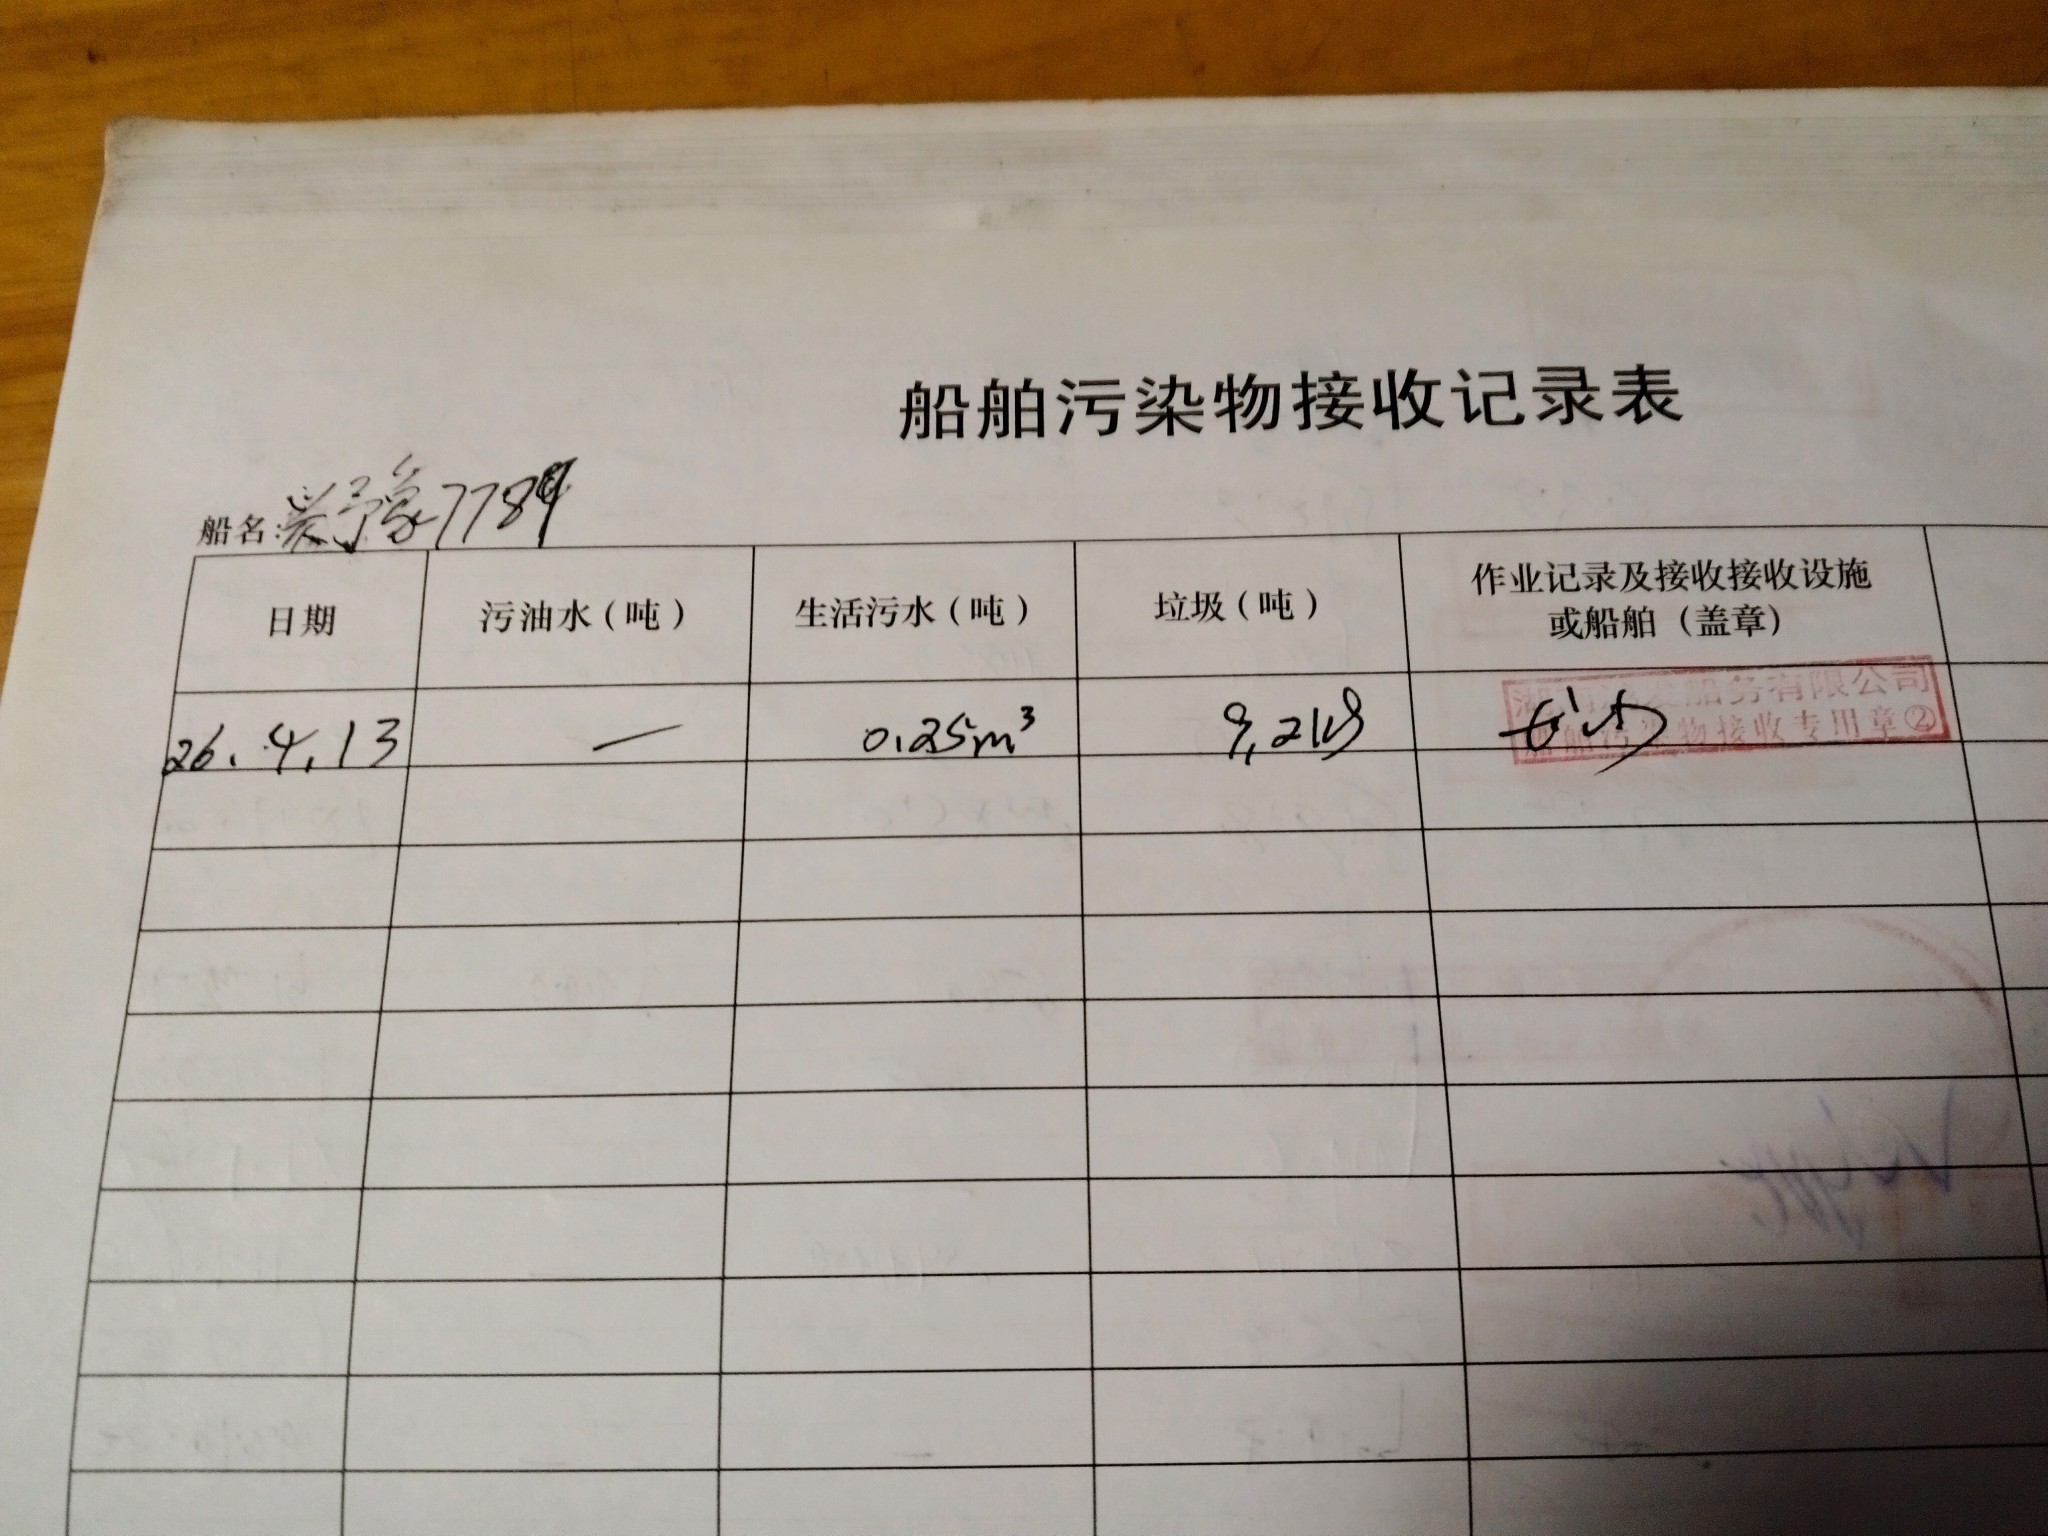 船舶污染物接收记录表
船名:豫7789
日期 污油水(吨) 生活污水(吨) 垃圾(吨) 作业记录及接收接收设施
或船舶(盖章)
26.4.13 — 0.25m³ 9.2kg
船务有限公司
船舶污染物接收专用章②